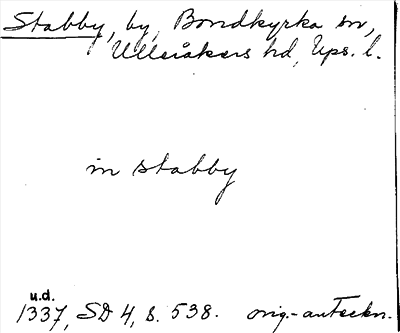 Stabby, by, Bondkyrka sn,
Ulleråkers hd, Ups. l.
in stabby
u.d.
1337, SD 4, s. 538. orig.-anteckn.